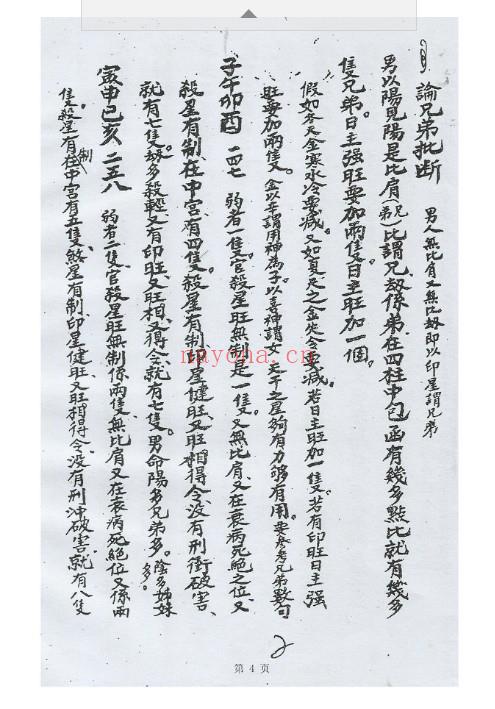 論兄弟批断
男人無比肩又無比劫即以印星謂兄弟
男以陽見陽是比肩(兄弟)比謂兄劫係弟在四柱中包函有幾多點比就有幾多
隻兄弟日主强旺要加兩隻日主旺加一個。
假如冬天金寒水冷要減。又如夏天之金炎令要減。若日主旺加一隻。若有印旺日主强
旺每加兩隻。金以辛謂用神為子以喜神謂女天干之星夠有力够有用。要參考兄弟數句
子午卯酉 一四七 弱者一隻。官殺星旺無制是一隻。又無比肩、又在衰病死絕之位、又
殺星有制、在中宮有四隻。殺星有制、印星健旺、又旺相得令、没有刑衝破害、
就有七隻。劫多殺輕、又有印旺、又旺相、又得令、就有七隻。男命陽多兄弟多。陰多姊妹
多。
寅申巳亥 二五八 弱者二隻、官殺星旺無制係兩隻、無比肩又在衰病死絕位又係兩
隻。殺星有制在中宮有五隻、煞星有制、印星健旺、又旺相得令、没有刑冲破害、就有八隻
naycha.cn
2
第 4 页